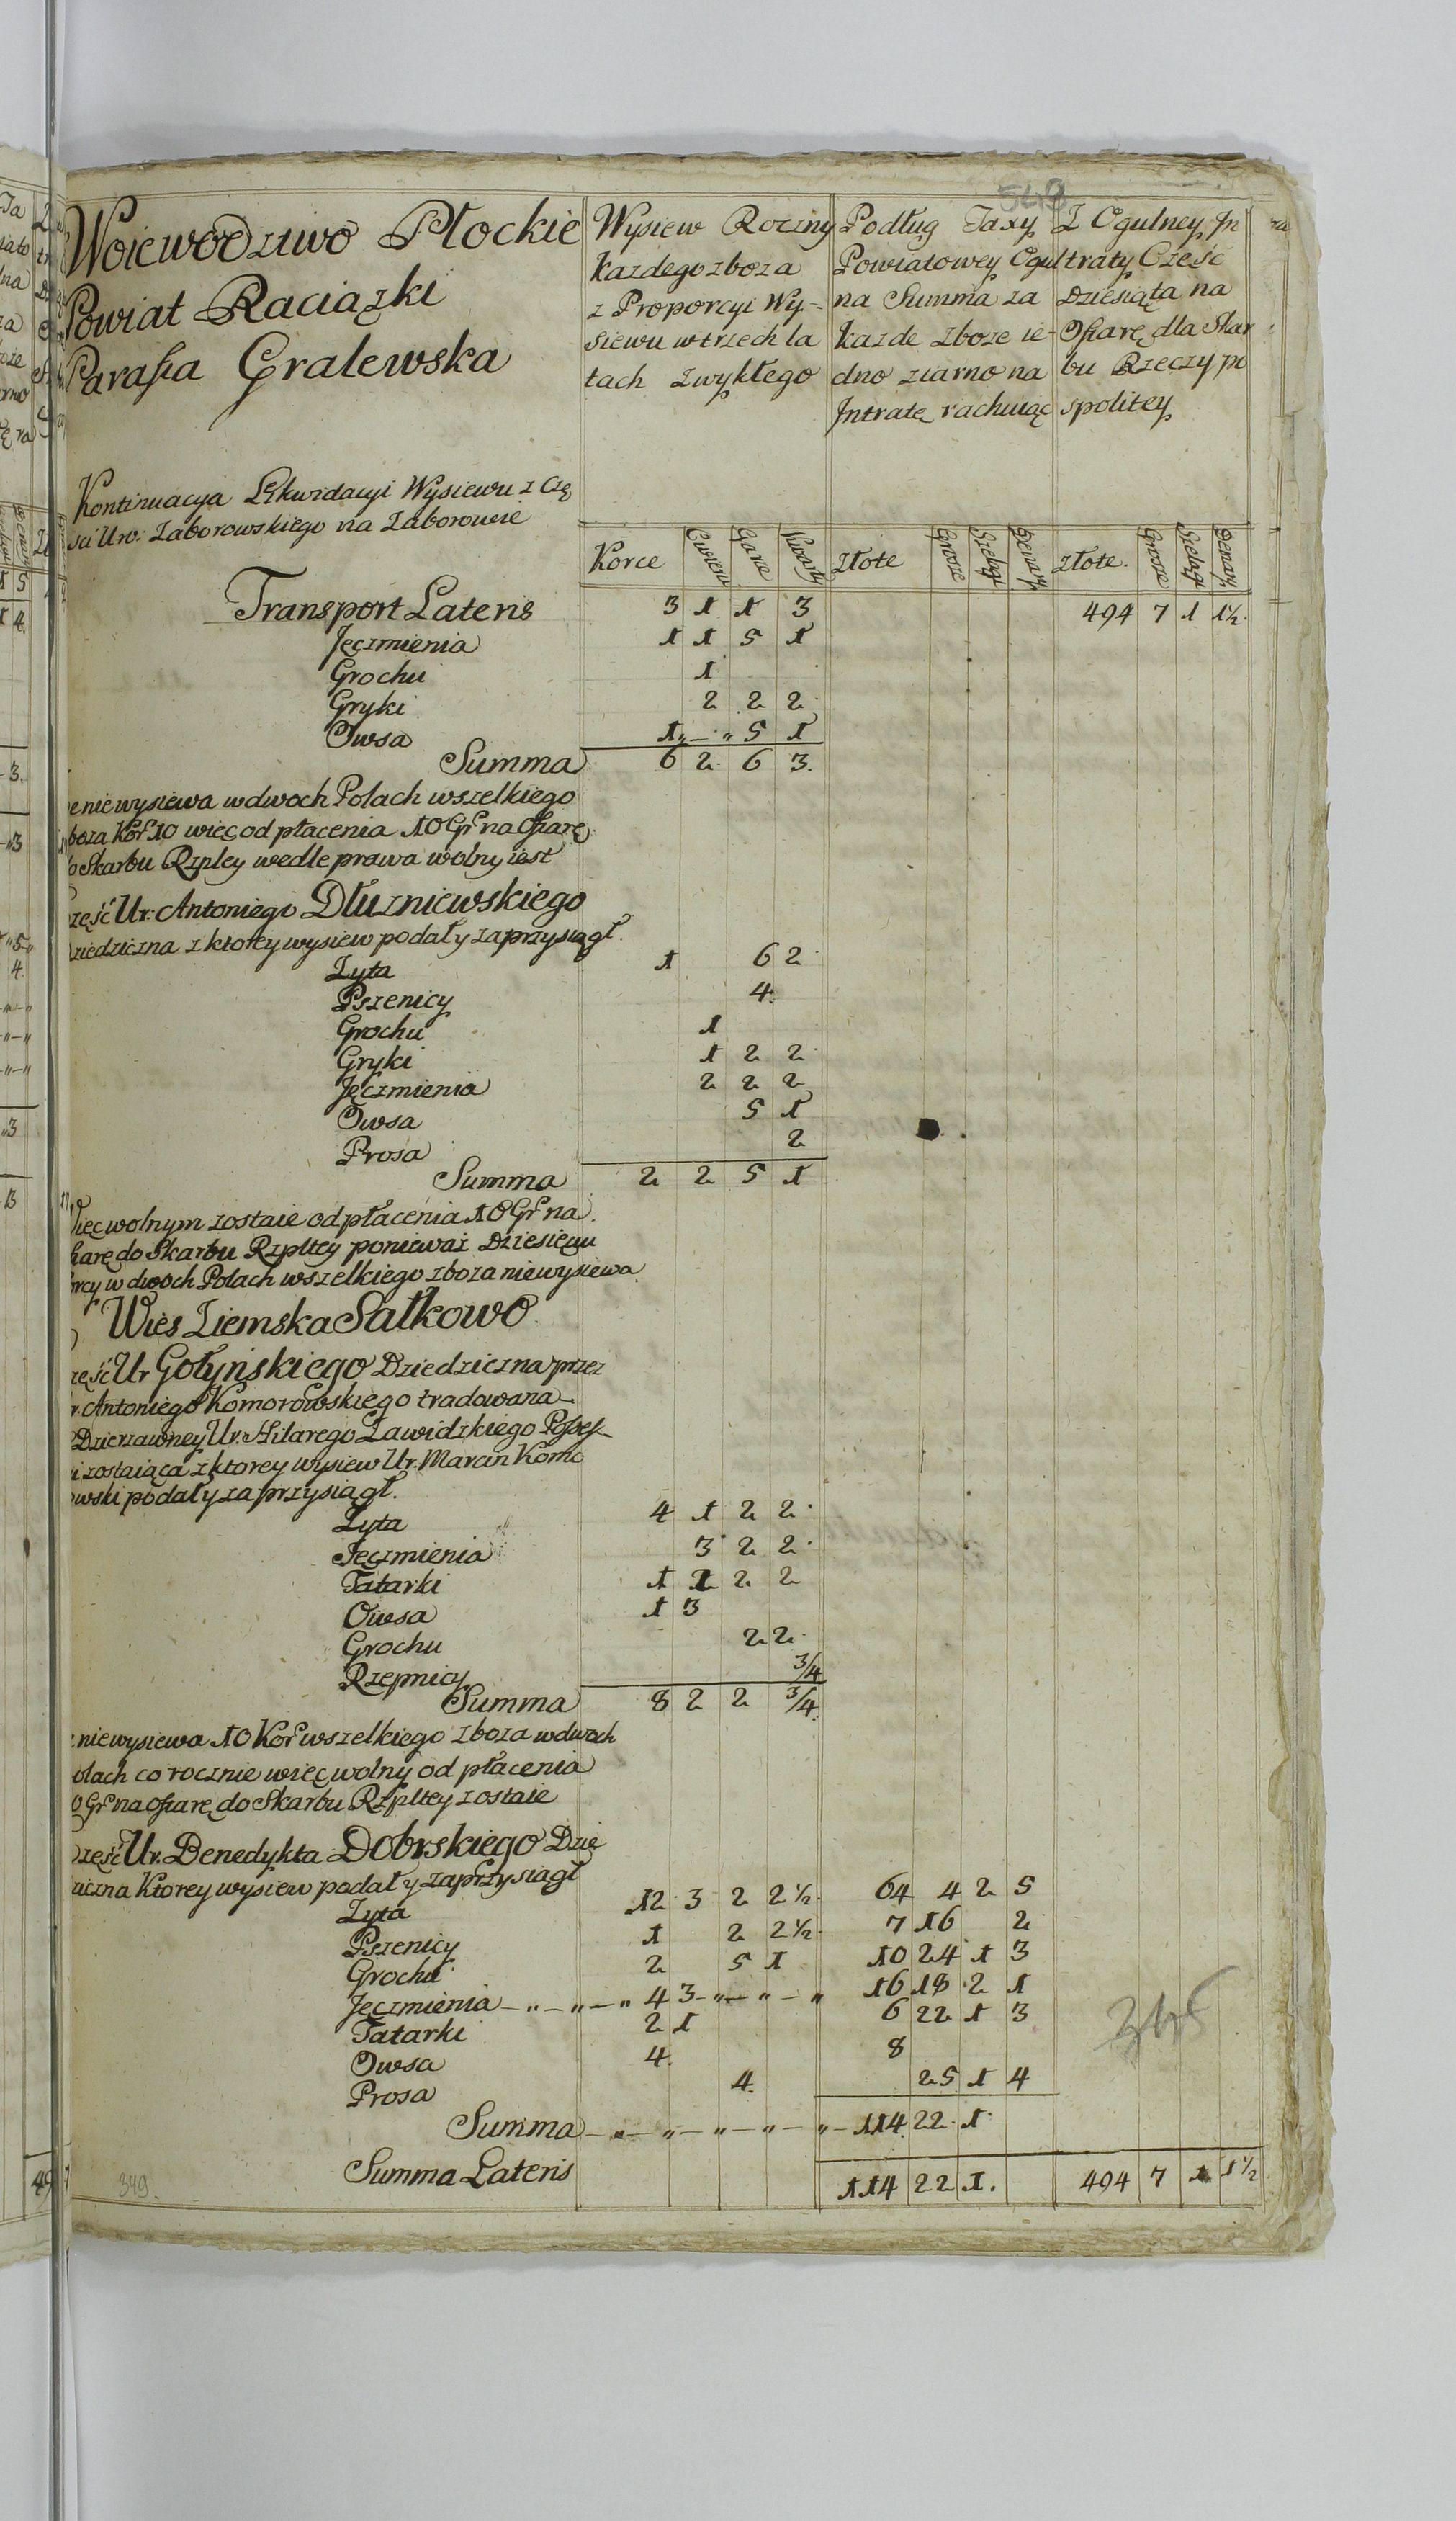 548
Woiewodztwo Płockie
Powiat Raciązki
Parafia Gralewska
Wysiew Roczny
kazdego zboza
z Proporcyi Wy-
siewu w trzech la
tach zwykłego
Podług Taxy
Powiatowey Ogul
na Summa za
kazde zboze ie-
dno ziarno na
Jntratę rachuiąc
Z Ogulney Jn
traty Cześć
Dziesiąta na
Ofiarę dla Skar
bu Rzeczy po
spolitey
Kontinuacya Likwidacyi Wysiewu z Czę
ści Uro: Zaborowskiego na Zaborowie
Korce Cwierci Garce Kwarty Złote Grosze Szelągi Denary Złote. Grosze Szelągi Denary
Transport Lateris 3 1 1 3 494 7 1 1½
Jęczmienia 1 1 5 1
Grochu 1
Gryki 2 2 2
Owsa 1 „ — „ 5 1
Summa 6 2 6 3.
e niewysiewa w dwoch Polach wszelkiego
boza Kor 10 więc od płacenia 10 Gr na Ofiarę
o Skarbu Rzpley wedle prawa wolny iest
zęść Ur: Antoniego Dłuzniewskiego
ziedziczna z ktorey wysiew podał y zaprzysiągł.
Zyta 1 6 2
Pszenicy 4.
Grochu 1
Gryki 1 2 2
Jęczmienia 2 2 2
Owsa 5 1
Prosa 2
Summa 2 2 5 1
Więc wolnym zostaie od płacenia 10 Gr na
fiarę do Skarbu Rzpltey ponieważ Dziesięciu
orcy w dwoch Polach wszelkiego zboza niewysiewa
Wies Ziemska Sałkowo
zęść Ur Gołyńskiego Dziedziczna przez
r. Antoniego Komorowskiego tradowana
Dzierzawney Ur. Hilarego Zawidzkiego Posses
i zostaiąca z ktorey wysiew Ur. Marcin Komo
owski podał y zaprzysiągł.
Zyta 4 1 2 2
Jęczmienia 3 2 2
Tatarki 1 2 2 2
Owsa 1 3
Grochu 2 2
Rzepnicy ¾
Summa 8 2 2 ¾
niewysiewa 10 Kor wszelkiego zboza w dwoch
olach co rocznie więc wolny od płacenia
0 Gr na ofiarę do Skarbu Rzpltey zostaie
zęść Ur. Benedykta Dobrskiego Dzie
ziczna Ktorey wysiew podał y zaprzysiągł
Zyta 12 3 2 2½ 64 4 2 5
Pszenicy 1 2 2½ 7 16 2
Grochu 2 5 1 10 24 1 3
Jęczmienia — „ — „ — „ 4 3 — „ — „ — „ 16 18 2 1
Tatarki 2 1 6 22 1 3
Owsa 4. 8
Prosa 4. 25 1 4
345
Summa — „ — „ — „ — „ — „ — 114 22 1
Summa Lateris 114 22 1. 494 7 1 1½
349.